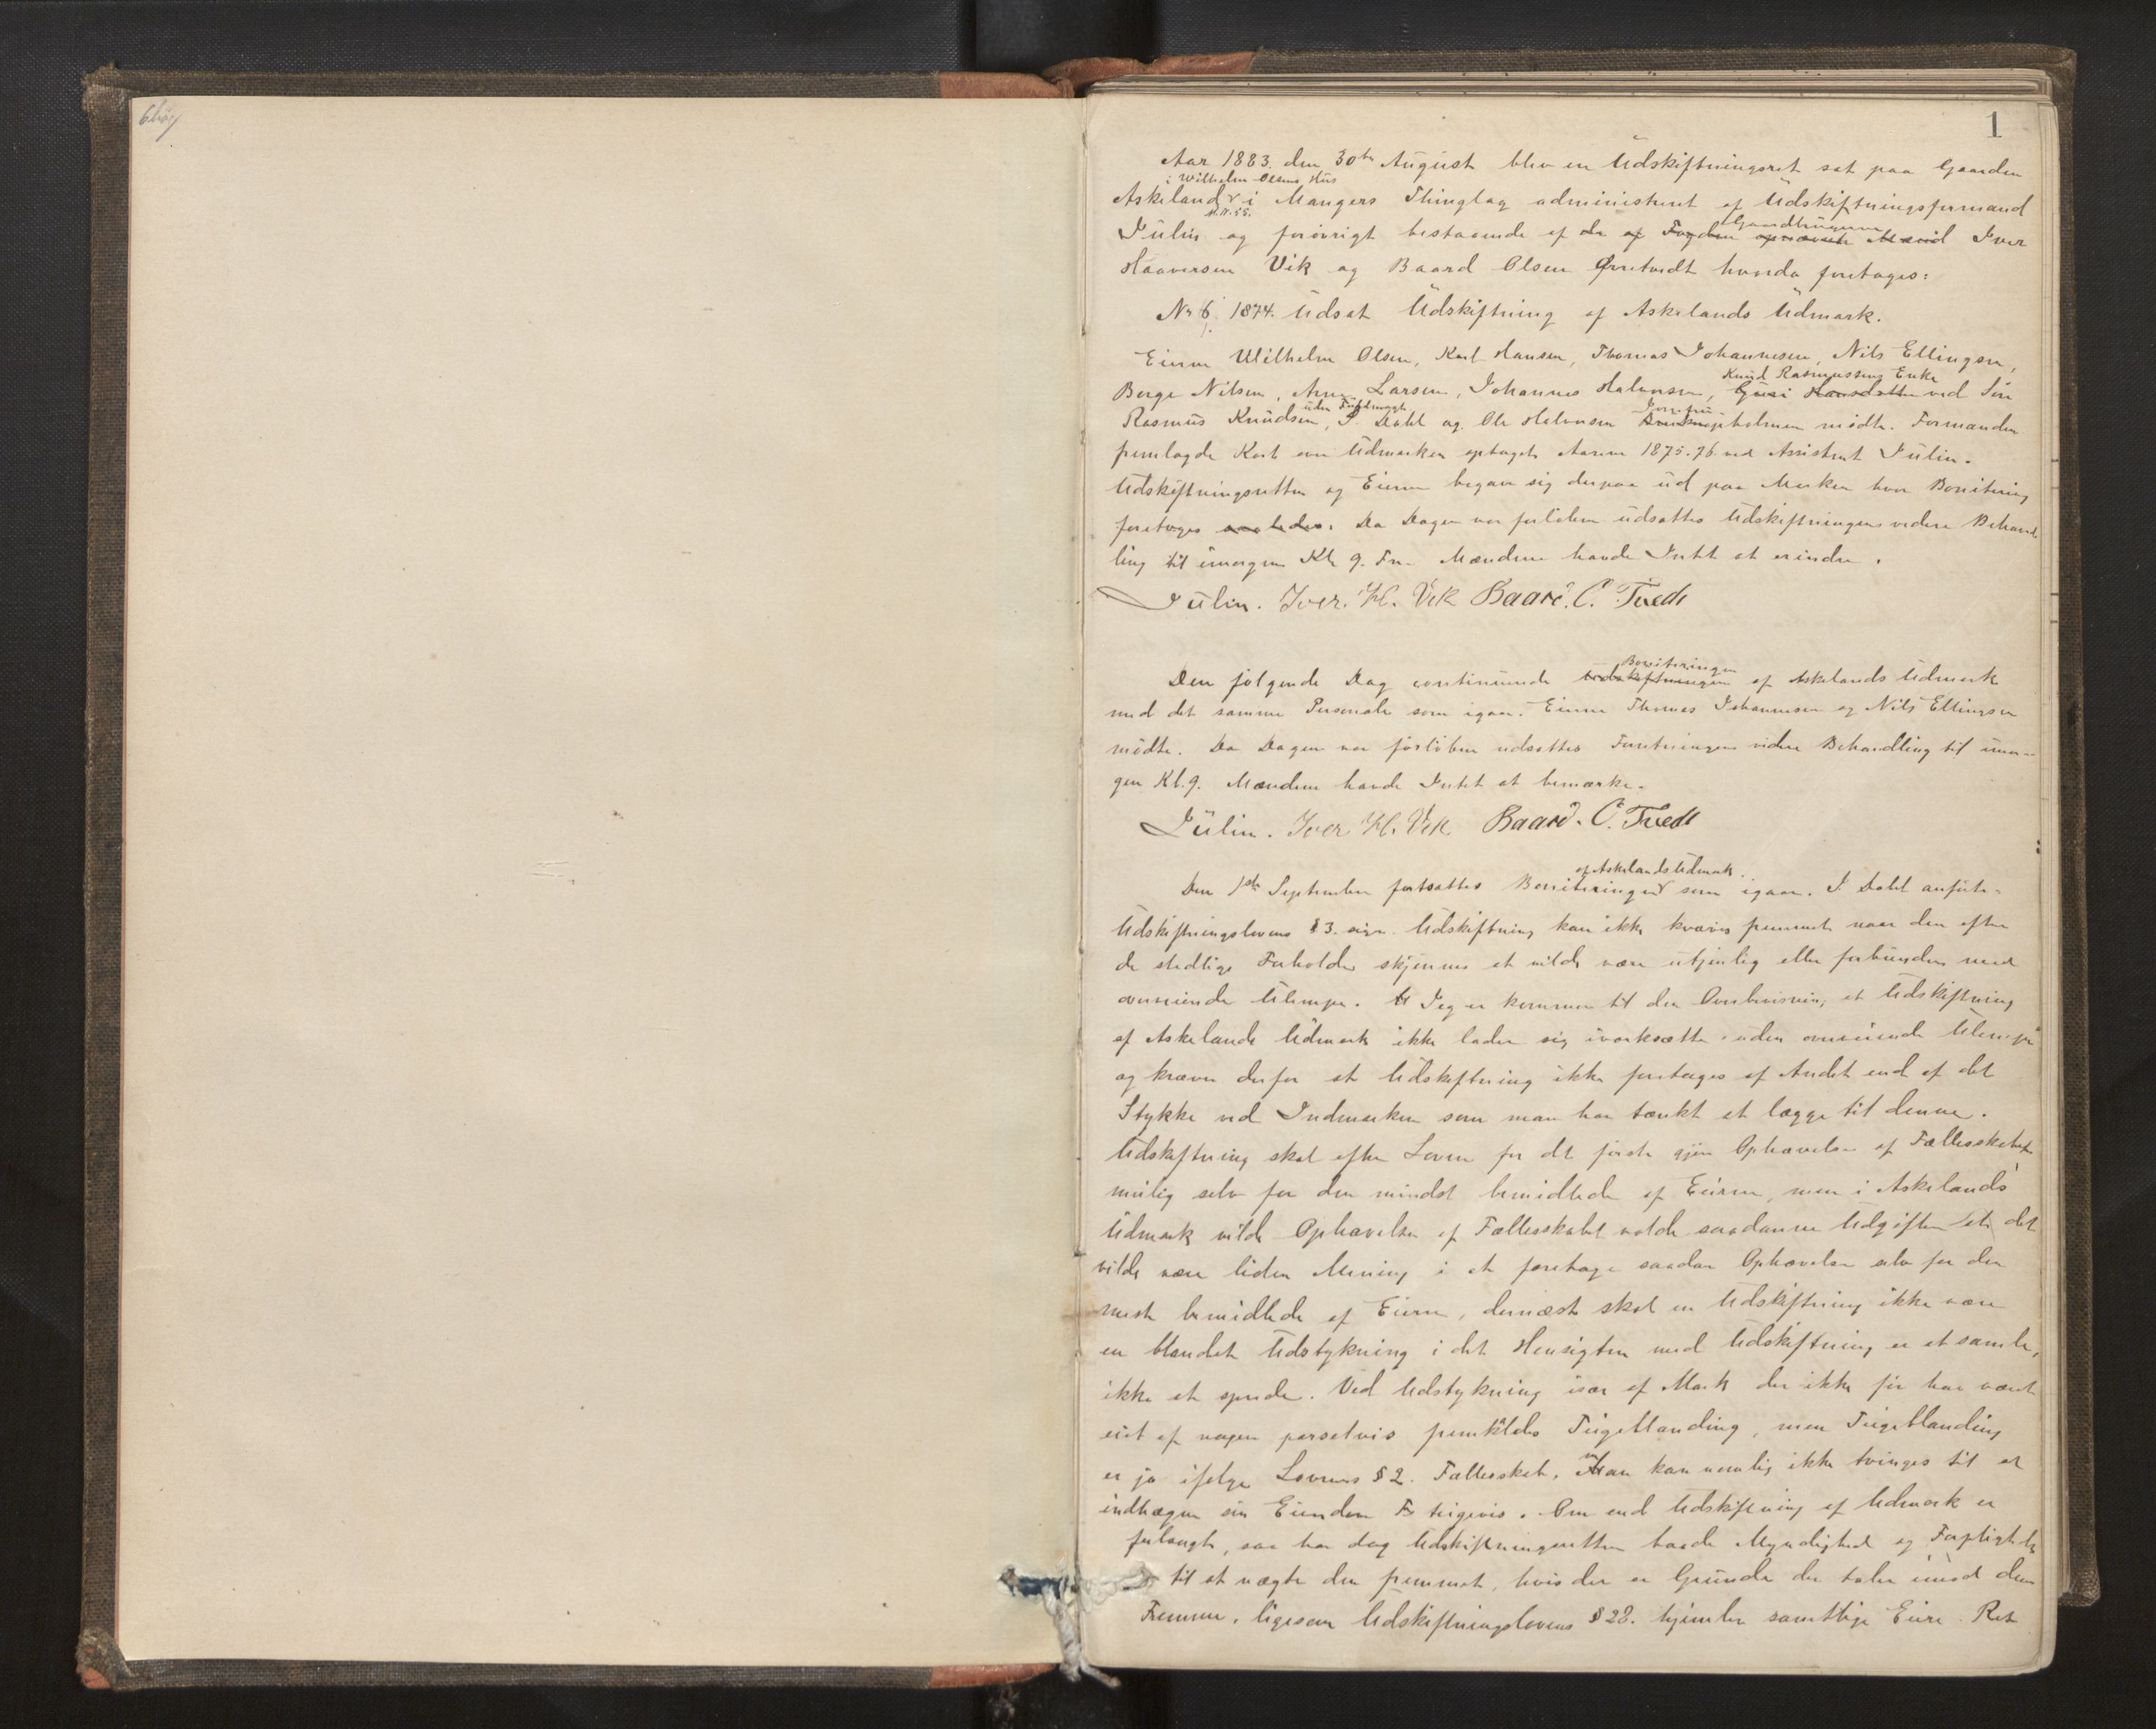 1
Aar 1883 den 30te August blev en Udskiftningsret sat paa Gaarden
i Wilhelm Olsens Hus
Askeland i Mangers Thinglag administreret af Udskiftningsformand
Julin og forövrigt bestaaende af de af Fogden opnævnte Mænd Iver
Gaardbrugerne
Haaversen Vik og Baard Olsen Qvretvedt hvorda foretoges:
No 6. 1874. Udsat Udskiftning af Askelands Udmark.
Eierne Wilhelm Olsen, Karl Hansen, Thomas Johannesen, Nils Ellingsen,
Knud Rasmussens Enke
Berge Nilsen, Arne Larsen, Johannes Halvorsen, Guri Hansdatter ved Sön
uden Fuldmagt
Rasmus Knudsen, I. Dahl og Ole Halvorsen holmen mödte. Formanden
fremlagde Kart over Udmarken optaget Aarene 1875-76 ved Assistent Julin.
Udskiftningsretten og Eierne begave sig derpaa ud paa Marken hvor Bonitering
foretoges saaledes. Da Dagen var forlöben udsattes Udskiftningens videre Behand
ling til imorgen Kl 9. Fm. Mændene havde Intet at erindre.
Julin. Iver. H. Vik Baard. O. Tvedt
Boniteringen
Den fölgende Dag continuerede Udskiftningen af Askelands Udmark
med det samme Personale som igaar. Eierne Thomas Johannesen og Nils Ellingsen
mödte. Da Dagen var forlöben udsattes Forretningens videre Behandling til imor-
gen Kl. 9. Mændene havde Intet at bemærke.
Julin. Iver H. Vik Baard. O. Tvedt
af Askelands Udmark
Den 1ste September fortsattes Boniteringen som igaar. I. Dahl anförte:
Udskiftningslovens § 3. siger. Udskiftning kan ikke kræves fremmet naar den efter
de stedlige Forholde skjönnes at vilde være utjenlig eller forbunden med
overveiende Ulempe. Jeg er kommen til den Overbevisning at Udskiftning
af Askelands Udmark ikke lader sig iværksætte uden overveiende Ulempe
og kræver derfor at Udskiftning ikke foretages af Andet end af det
Stykke ved Indmarken som man har tænkt at lægge til denne.
Udskiftning skal efter Loven for det förste gjöre Ophævelse af Fællesskabet
mulig selv for den mindst bemidlede af Eierne, men i Askelands
Udmark vilde Ophævelse af Fællesskabet volde saadanne Udgifter at det
vilde være liden Mening i at foretage saadan Ophævelse selv for den
mest bemidlede af Eierne, dernæst skal en Udskiftning ikke være
en blandet Udstykning i det Hensigten med Udskiftning er at samle,
ikke at sprede. Ved Udstykning især af Mark der ikke för har været
eiet af nogen parselvis fremkaldes Teigeblanding, men Teigeblanding
er jo ifölge Lovens § 2. Fællesskab. Man kan nemlig ikke tvinges til at
indhegne sin Eiendom teigevis. Om end Udskiftning af Udmark er
forlangt, saa har dog Udskiftningsretten baade Myndighed og Forpligtelse
til at nægte den fremmet, hvis der er Grunde der taler imod dens
Fremme, ligesom Udskiftningslovens § 28. hjemler samtlige Eiere Ret